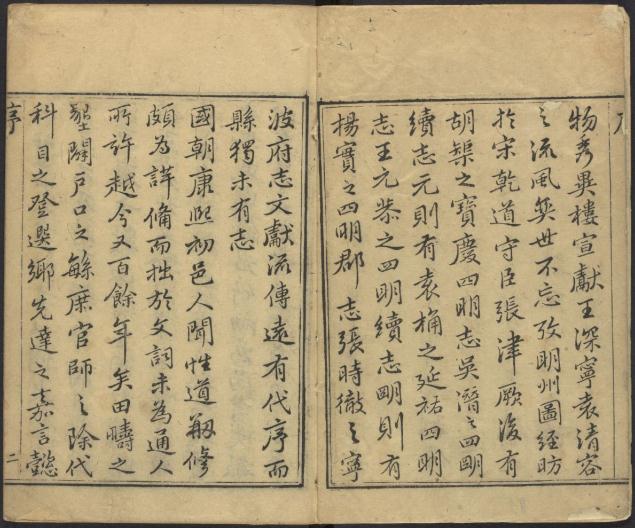 物秀異樓宣獻王深寧袁清容
之流風奕世不忘攷明州圖經昉
於宋乾道守臣張津厥後有
胡榘之寶慶四明志吳潛之四明
續志元則有袁桷之延祐四明
志王元恭之四明續志明則有
楊寔之四明郡志張時徹之寧
波府志文獻流傳遠有代序而
縣獨未有志
國朝康熙初邑人聞性道剏修
頗為詳備而拙於文詞未為通人
所許越今又百餘年矣田疇之
墾闢戶口之緐庶官師之除代
科目之登選鄉先達之嘉言懿
序
二